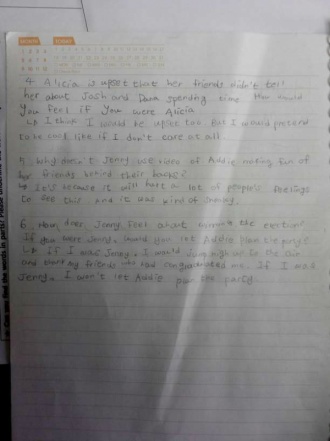 4. Alicia is upset that her friends didn't tell
her about Josh and Dana spending time. How would
you feel if you were Alicia
↳ I think I would be upset too. But I would pretend
to be look like if I don't care at all.
5. Why doesn't Jenny use video of Addie making fun of
her friends behind their backs?
↳ It's because it will hurt a lot of people's feelings
to see this and it was kind of
6. How does Jenny feel about the election?
If you were Jenny, would you let Addie plan the party?
↳ if I was Jenny, I would jump high up to the
and my friends who had congratulated me. If I was
Jenny, I won't let Addie plan the party.